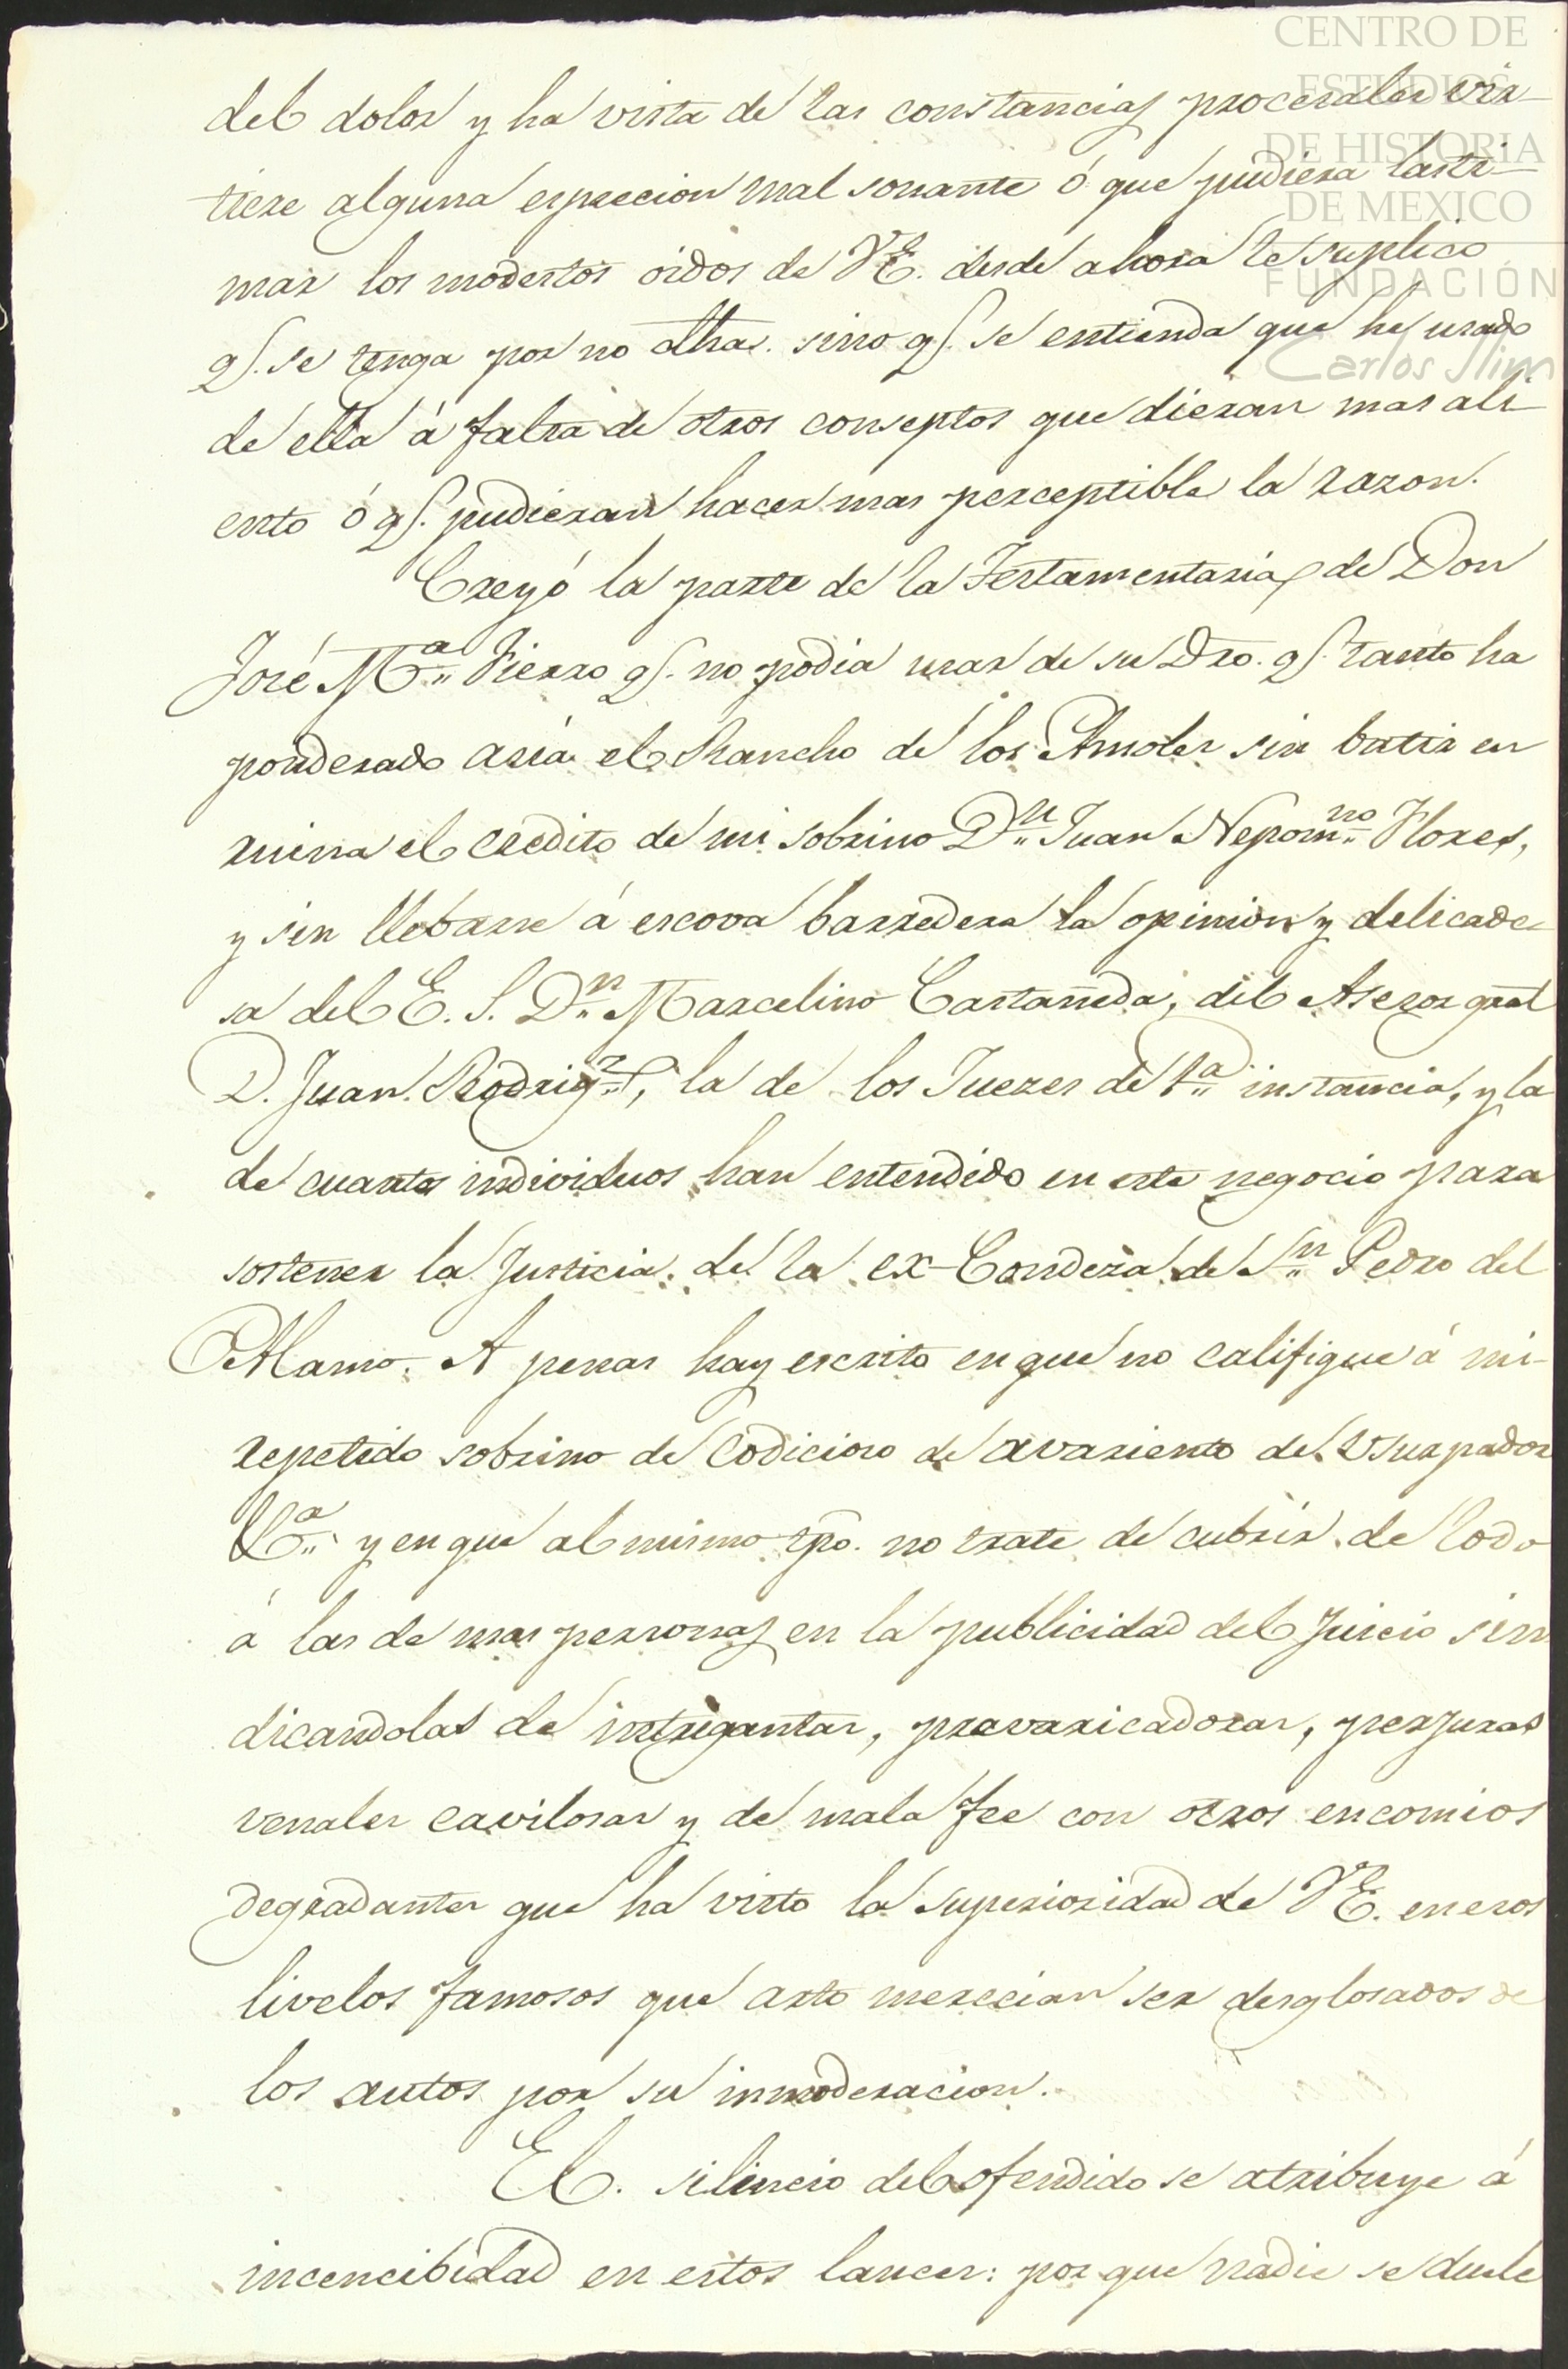 CENTRO DE
ESTUDIOS
DE HISTORIA
DE MEXICO
FUNDACIÓN
Carlos Slim
del dolor y ha vista de las constancias procesales vir-
tiere alguna esprecion mal sonante ó que pudiera lasti-
mar los modestos oidos de V.E. desde ahora le suplico
q. se tenga por no dha. sino q. se entienda que he usado
de ella á falta de otros conseptos que dieran mas ali-
ento ó q. pudieran hacer mas perceptible la razon.
Creyó la parte de la Testamentaria de Don
José Ma. Fierro q. no podia usar de su Dro. q. tanto ha
ponderado asia el Rancho de los Amoles sin batir en
ruina el credito de mi sobrino Dn. Juan Nepomno. Flores,
y sin llebarse á escova barredera la opinion y delicade-
sa del E. S. Dn. Marcelino Castañeda, del Asesor gral
D. Juan Rodrigz., la de los Juezes de 1a. instancia, y la
de cuantos individuos han entendido en este negocio para
sostener la Justicia de la ex-Condeza de Sn. Pedro del
Alamo. A penas hay escrito en que no califique á mi
repetido sobrino de Codicioso de avariento de Vsurpador
&a. y en que al mismo tpo. no trate de cubrir de lodo
á las de mas personas en la publicidad del Juicio sin
dicandolas de intrigantas, pravaricadoras, perjuras
venales cavilosas y de mala fee con otros encomios
degradantes que ha visto la superioridad de V.E. en esos
livelos famosos que arto merecian ser desglosados de
los autos por su inmoderacion.
El silincio del ofendido se atribuye á
incencibidad en estos lances: por que nadie se duele